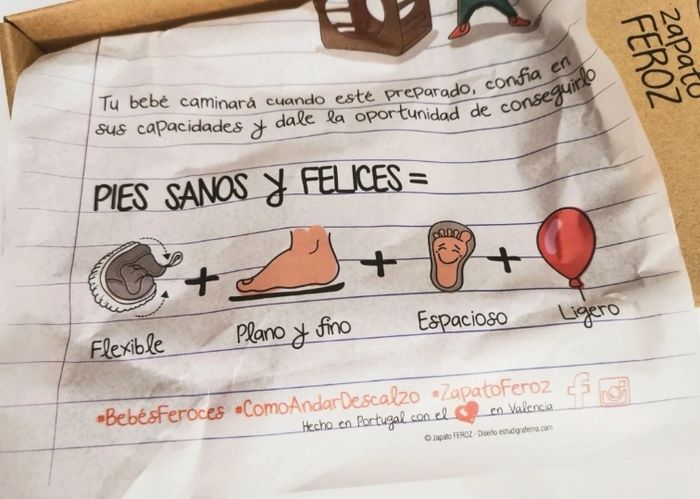 zapato
FEROZ
Tu bebé caminará cuando esté preparado, confía en
sus capacidades y dale la oportunidad de conseguirlo
PIES SANOS y FELICES =
+ + +
Flexible Plano y fino Espacioso Ligero
#BebésFeroces #ComoAndarDescalzo #ZapatoFeroz
Hecho en Portugal con el en Valencia
© zapato FEROZ - Diseño estudigraterna.com